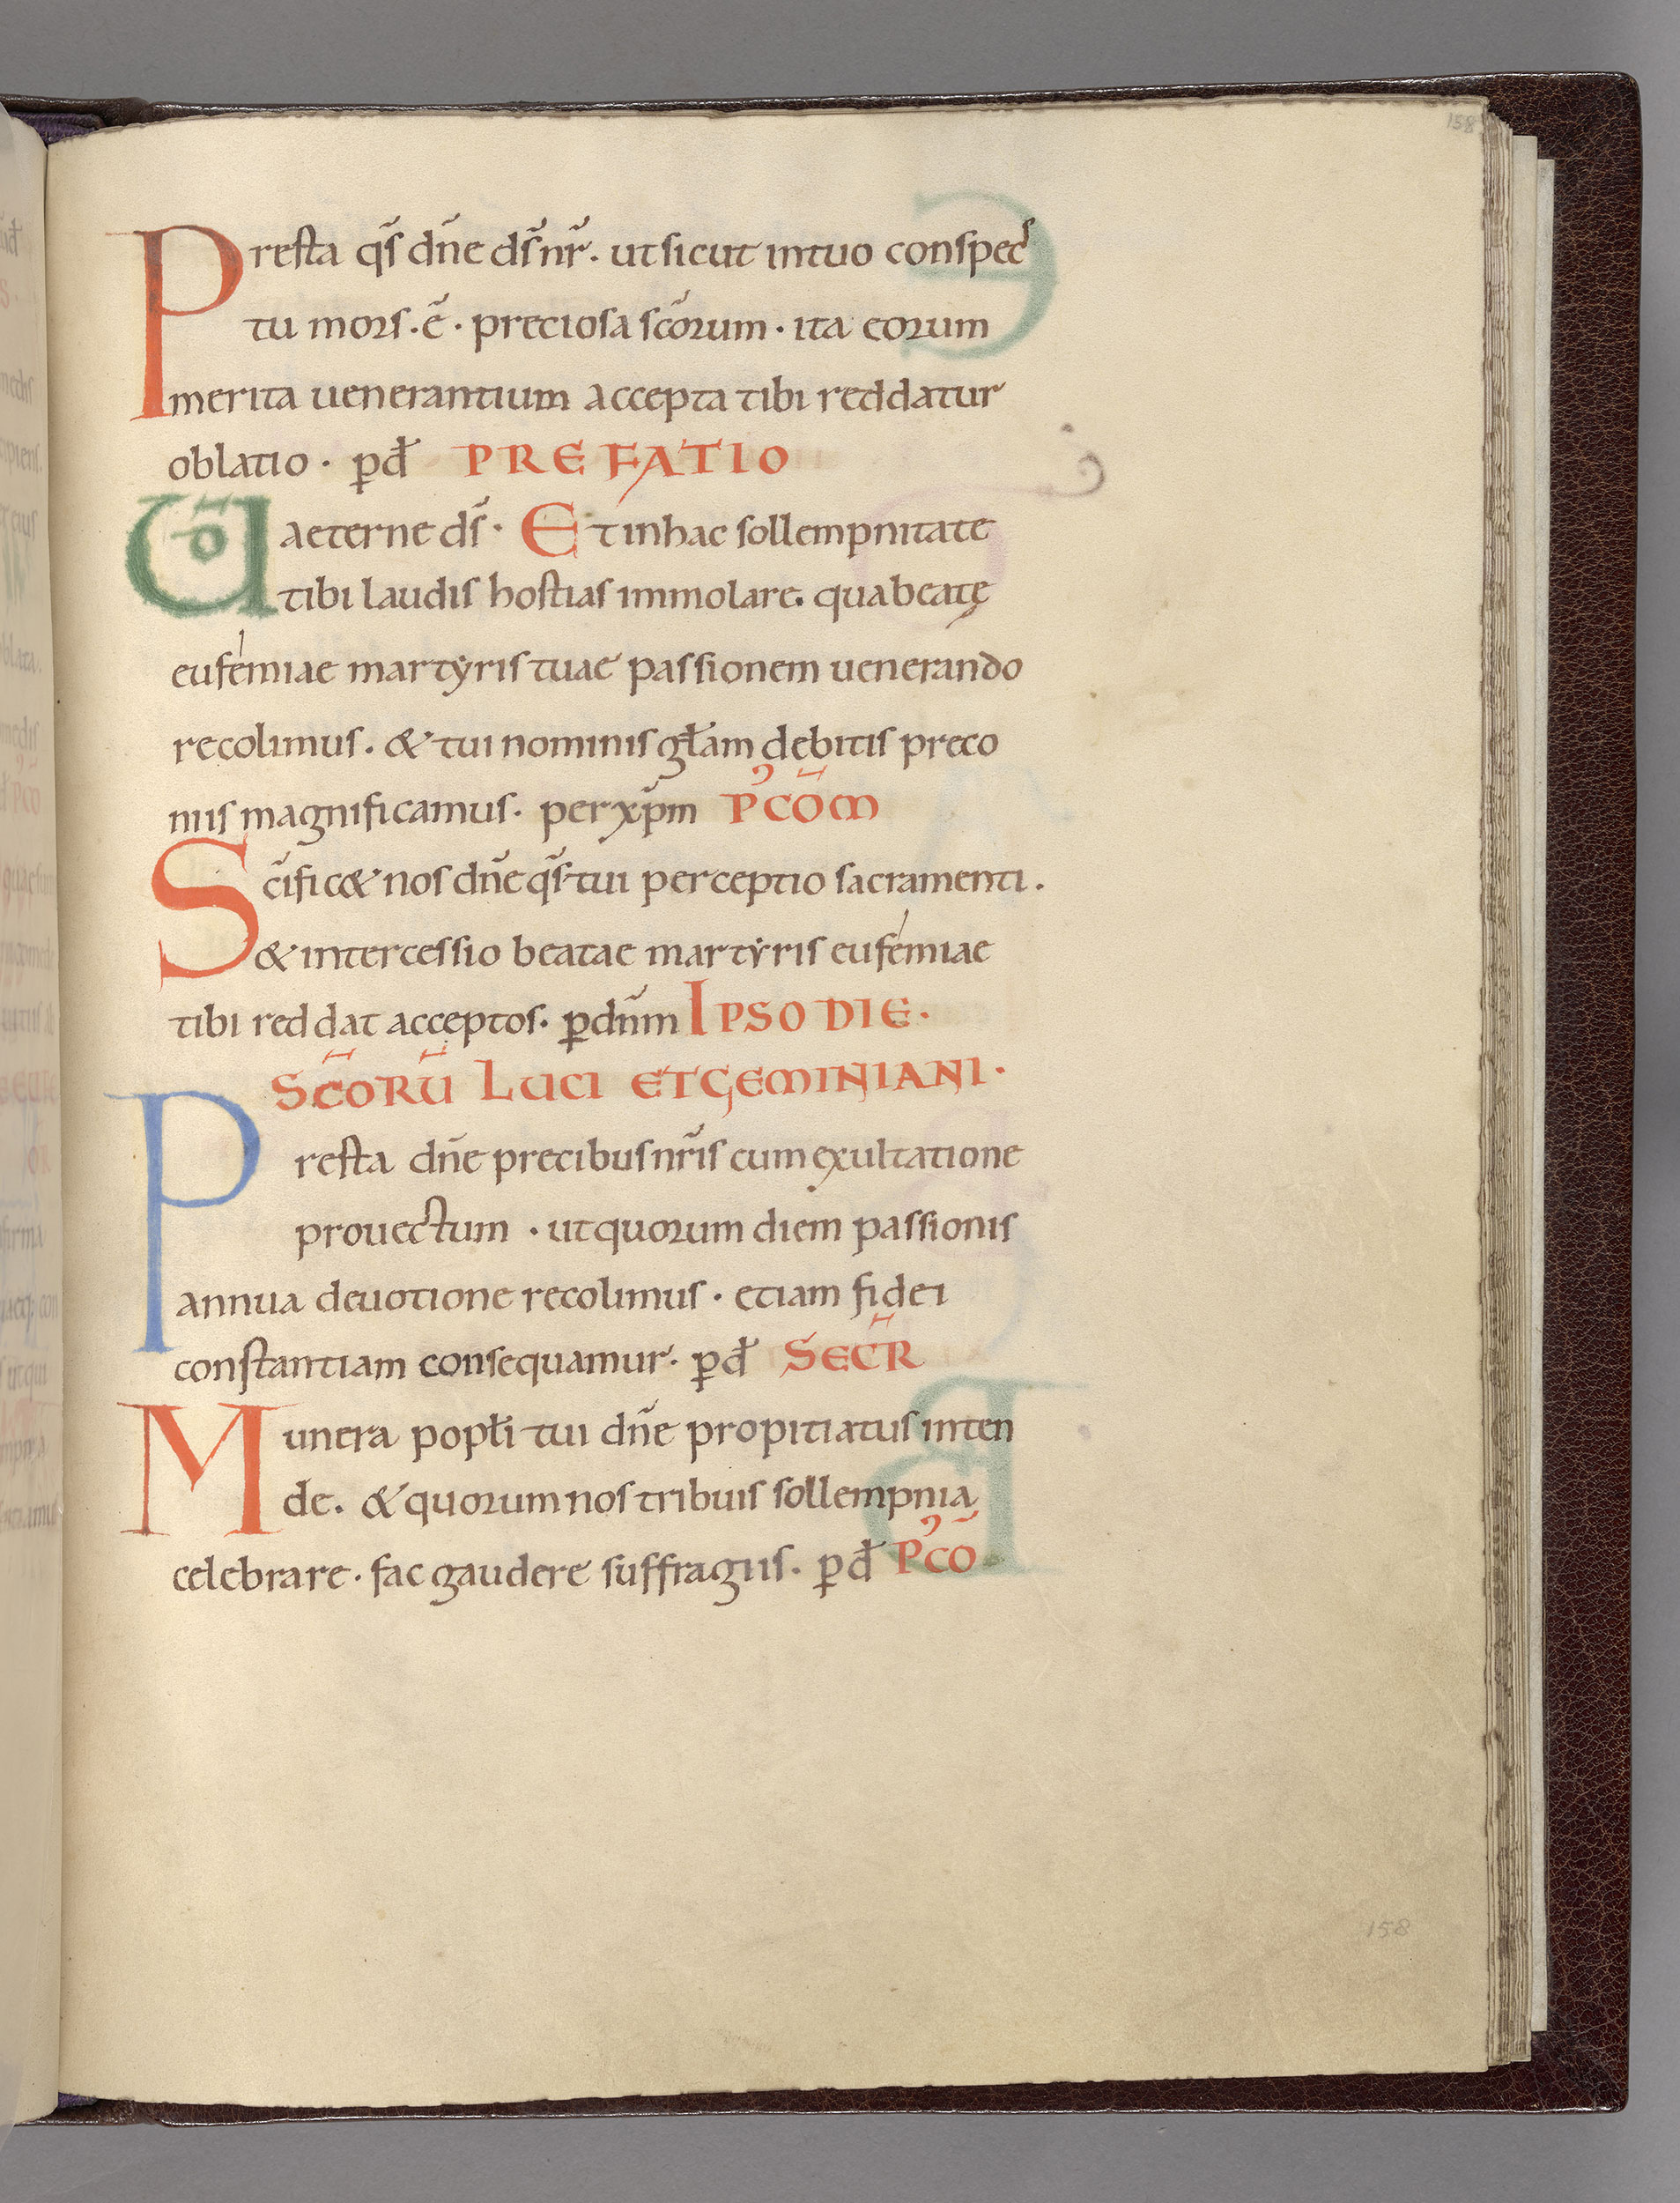 158
Presta q̃s dñe ds̃ nr̃. ut sicut in tuo conspec
tu mors. ẽ. preciosa sc̃orum. ita eorum
merita uenerantium accepta tibi reddatur
oblatio. ꝑ đ PREFATIO
UÕ aeterne ds̃. Et in hac sollempnitate
tibi laudis hostias immolare. qua beatę
eufémiae martẏris tuae passionem uenerando
recolimus. & tui nominis gl̃am debitis preco
niis magnificamus. per xp̃m P'COM̃
Sc̃ific& nos dñe q̃s tui perceptio sacramenti.
& intercessio beatae martẏris eufémiae
tibi reddat acceptos. ꝑ dñm IPSO DIE.
SC̃ORŨ LUCI ET GEMINIANI.
Presta dñe precibus nr̃is cum exultatione
prouectum. ut quorum diem passionis
annua deuotione recolimus. etiam fidei
constantiam consequamur. ꝑ đ SECR̃
Munera popl̃i tui dñe propitiatus inten
de. & quorum nos tribuis sollempnia
celebrare. fac gaudere suffragiis. ꝑ đ P'CÕ
158